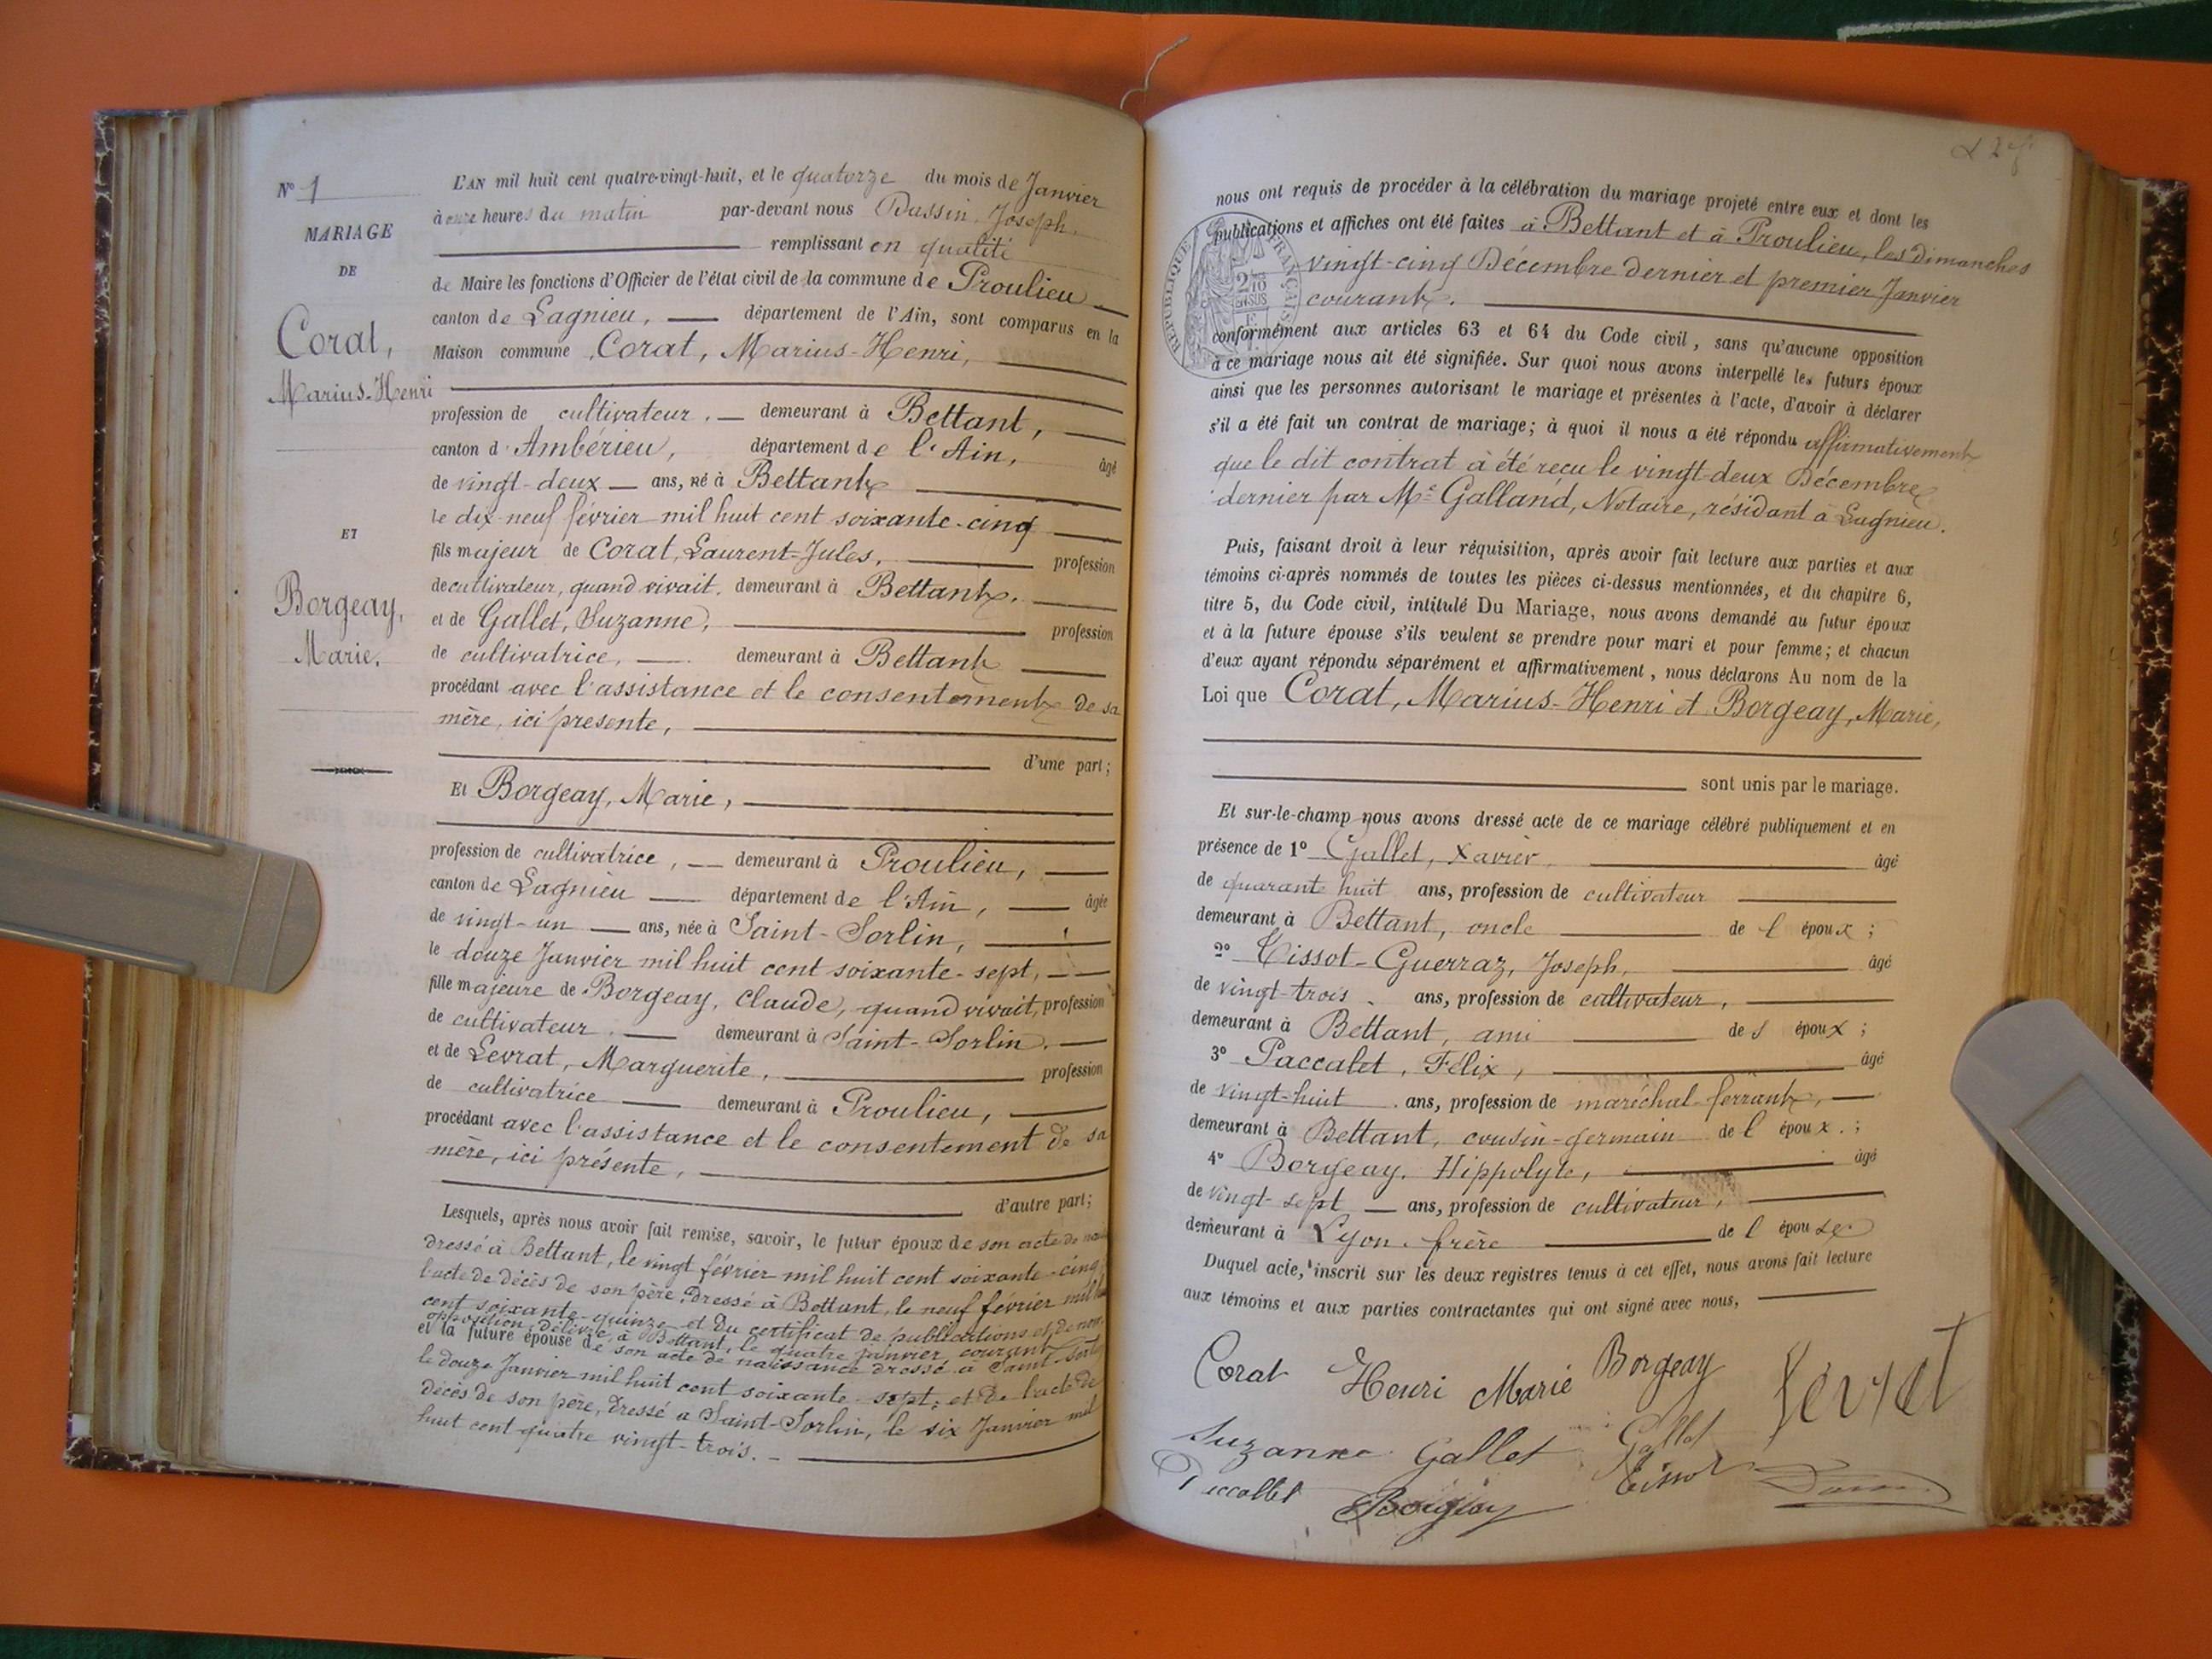 N° 1
MARIAGE
DE
Corat,
Marius-Henri
ET
Borgeay,
Marie.
L'AN mil huit cent quatre-vingt-huit, et le quatorze du mois de Janvier
à onze heures du matin par-devant nous Dassin Joseph,
remplissant en qualité
de Maire les fonctions d'Officier de l'état civil de la commune de Proulieu
canton de Lagnieu, département de l'Ain, sont comparus en la
Maison commune Corat, Marius-Henri,
profession de cultivateur, demeurant à Bettant,
canton d'Ambérieu, département de l'Ain, âgé
de vingt-deux ans, né à Bettant
le dix-neuf février mil huit cent soixante-cinq
fils majeur de Corat, Laurent-Jules, profession
de cultivateur, quand vivait, demeurant à Bettant,
et de Gallet, Suzanne, profession
de cultivatrice, demeurant à Bettant
procédant avec l'assistance et le consentement de sa
mère, ici présente,
d'une part;
Et Borgeay, Marie,
profession de cultivatrice, demeurant à Proulieu,
canton de Lagnieu département de l'Ain, âgée
de vingt-un ans, née à Saint-Sorlin,
le douze Janvier mil huit cent soixante-sept,
fille majeure de Borgeay, Claude, quand vivait, profession
de cultivateur demeurant à Saint-Sorlin,
et de Levrat, Marguerite, profession
de cultivatrice demeurant à Proulieu,
procédant avec l'assistance et le consentement de sa
mère, ici présente,
d'autre part;
Lesquels, après nous avoir fait remise, savoir, le futur époux de son acte de
dressé à Bettant, le vingt février mil huit cent soixante-cinq
l'acte de décès de son père, dressé à Bettant, le neuf février mil
cent soixante-quinze et du certificat de publications et de non
opposition, délivré à Bettant, le quatre janvier courant
et la future épouse de son acte de naissance dressé à Saint-Sorlin
le douze Janvier mil huit cent soixante-sept; et de l'acte de
décès de son père, dressé à Saint-Sorlin, le six Janvier mil
huit cent quatre vingt-trois.
nous ont requis de procéder à la célébration du mariage projeté entre eux et dont les
publications et affiches ont été faites à Bettant et à Proulieu, les dimanches
vingt-cinq Décembre dernier et premier Janvier
courant.
RÉPUBLIQUE FRANÇAISE
conformément aux articles 63 et 64 du Code civil, sans qu'aucune opposition
à ce mariage nous ait été signifiée. Sur quoi nous avons interpellé les futurs époux
ainsi que les personnes autorisant le mariage et présentes à l'acte, d'avoir à déclarer
s'il a été fait un contrat de mariage; à quoi il nous a été répondu affirmativement
que le dit contrat à été reçu le vingt-deux Décembre
dernier par Me Galland, Notaire, résidant à Lagnieu.
Puis, faisant droit à leur réquisition, après avoir fait lecture aux parties et aux
témoins ci-après nommés de toutes les pièces ci-dessus mentionnées, et du chapitre 6,
titre 5, du Code civil, intitulé Du Mariage, nous avons demandé au futur époux
et à la future épouse s'ils veulent se prendre pour mari et pour femme; et chacun
d'eux ayant répondu séparément et affirmativement, nous déclarons Au nom de la
Loi que Corat, Marius-Henri et Borgeay, Marie,
sont unis par le mariage.
Et sur-le-champ nous avons dressé acte de ce mariage célébré publiquement et en
présence de 1° Gallet, Xavier, âgé
de quarante huit ans, profession de cultivateur
demeurant à Bettant, oncle de l époux;
2° Tissot-Guerraz, Joseph, âgé
de vingt-trois ans, profession de cultivateur,
demeurant à Bettant, ami de l époux;
3° Paccalet, Félix, âgé
de vingt-huit ans, profession de maréchal-ferrant,
demeurant à Bettant, cousin-germain de l époux;
4° Borgeay, Hippolyte, âgé
de vingt-sept ans, profession de cultivateur,
demeurant à Lyon, frère de l épouse
Duquel acte, inscrit sur les deux registres tenus à cet effet, nous avons fait lecture
aux témoins et aux parties contractantes qui ont signé avec nous,
Corat Henri Marie Borgeay Levrat
Suzanne Gallet Gallet
Paccallet Borgeay Tissot